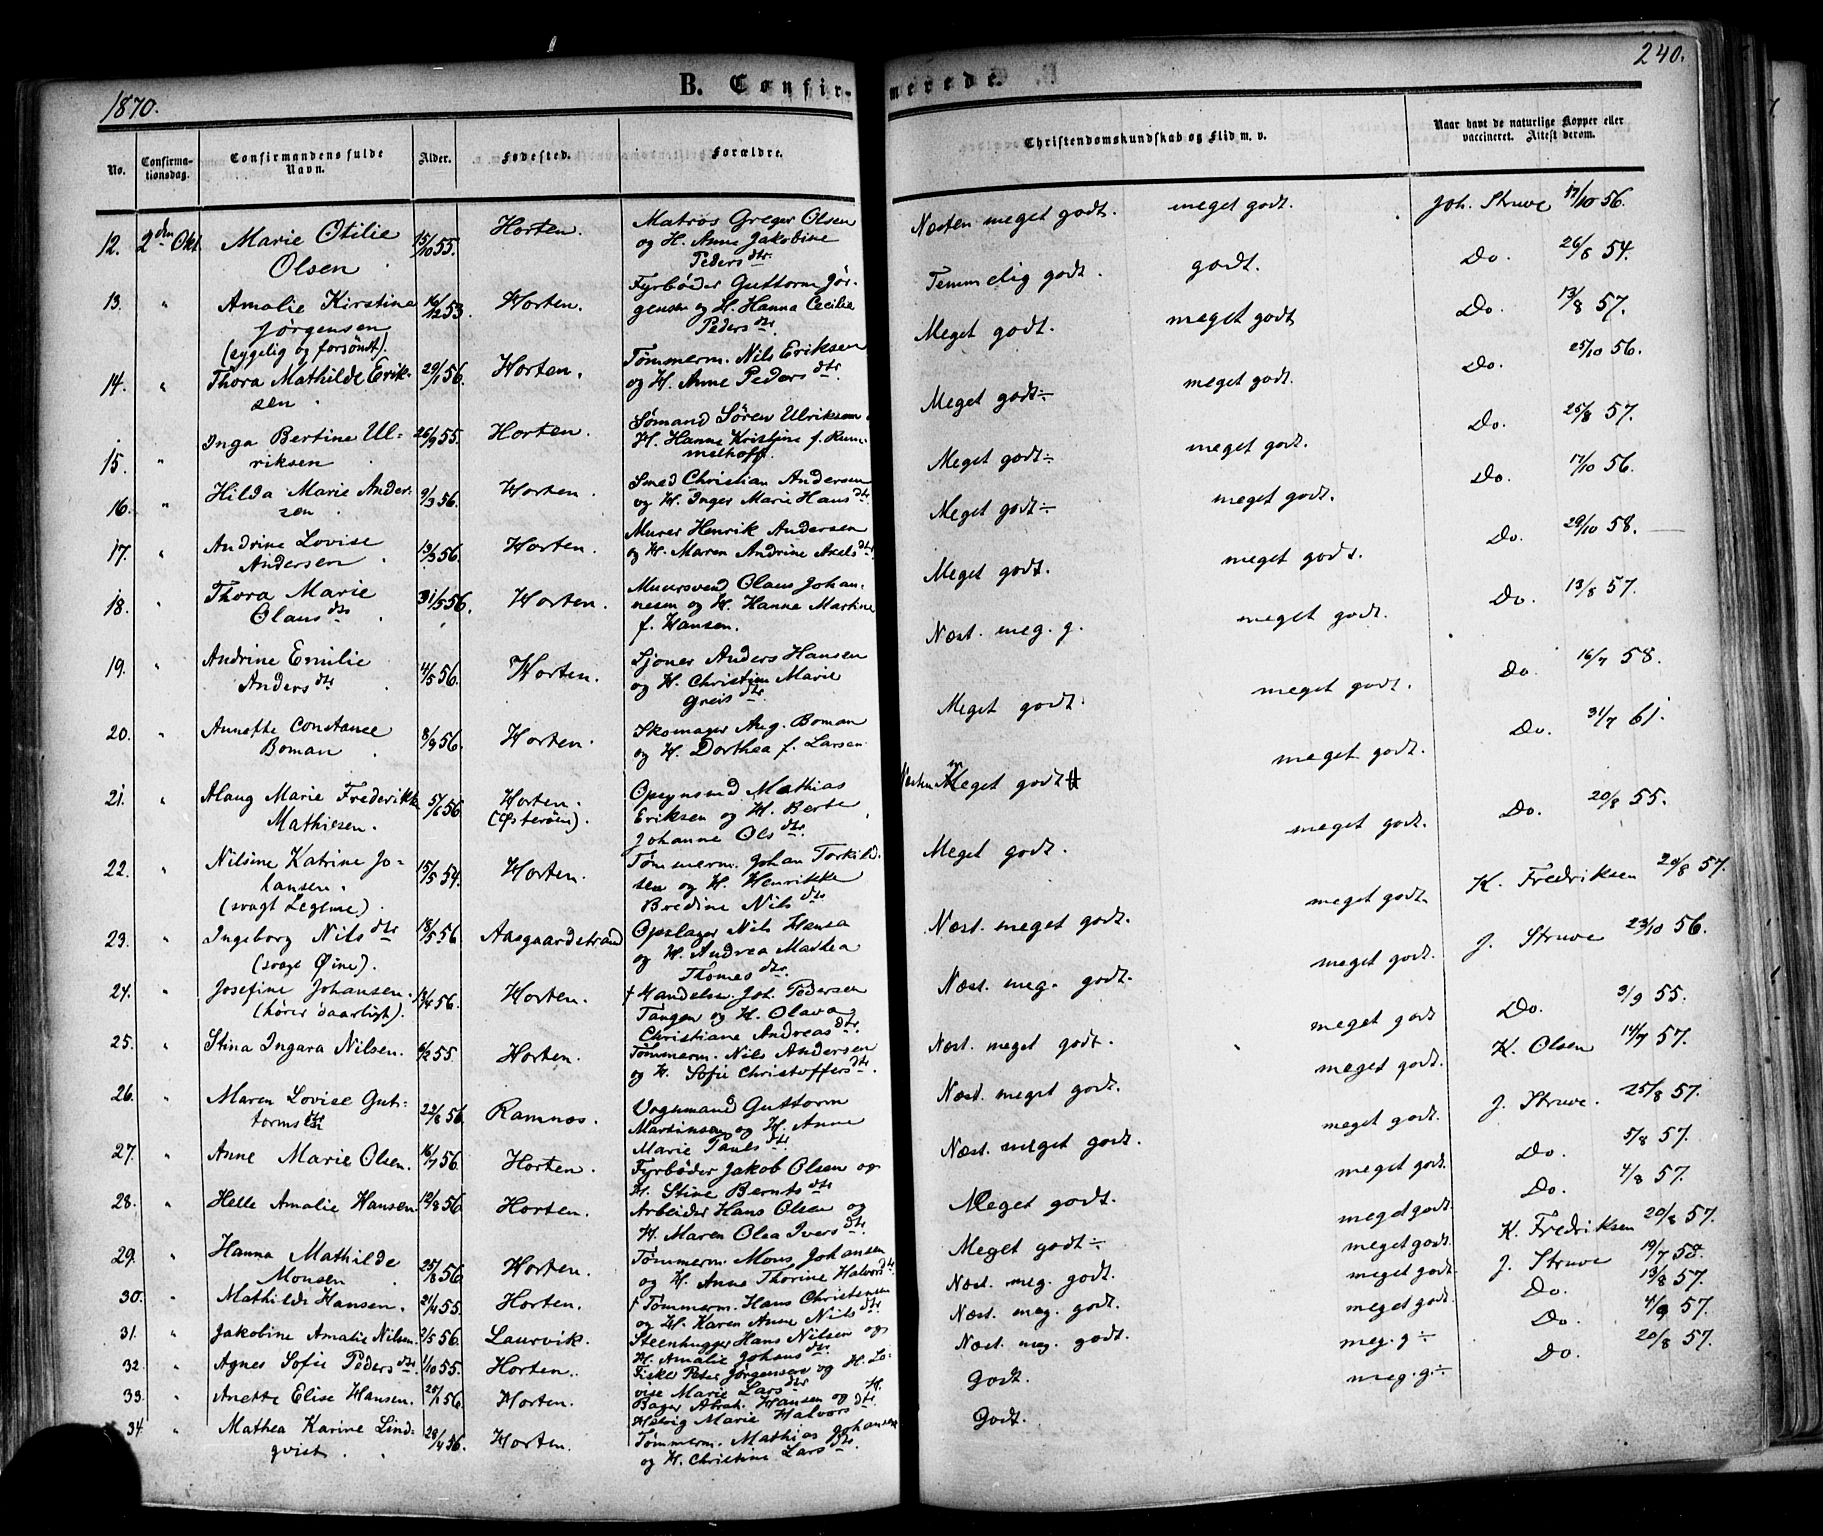 1870.
B. Confirmerede.
240.
No.
Confirmationsdag.
Confirmandens fulde Navn.
Alder.
Fødested.
Forældre.
Christendomskundskab og Flid m. v.
Naar havt de naturlige Kopper eller vaccineret. Attest derom.
12. 2den Okt. Marie Otilie 15/10 55. Horten. Matros Greger Olsen Næsten meget godt. meget godt. Joh. Struve 17/10 56.
Olsen og H. Anne Jakobine
Pedersdtr
13. " Amalie Kirstine 16/12 53. Horten. Fyrbøder Guttorm Jør- Temmelig godt. godt. Do. 26/8 54.
Jørgensen gensen og H. Hanna Cecilie
(sygelig og forsömt). Pedersdtr
14. " Thora Mathilde Erik- 29/1 56. Horten. Tømmerm. Nils Eriksen Meget godt. meget godt Do. 13/8 57.
sen. og H. Anne Pedersdtr
15. " Inga Bertine Ul- 26/9 55. Horten. Sømand Sören Ulriksen Meget godt÷ meget godt. Do. 25/10 56.
riksen H. Hanne Kristine f. Rum-
melhoff.
16. " Hilda Marie Ander- 9/3 56. Horten. Smed Christian Andersen Meget godt÷ meget godt. Do. 25/8 57.
sen. og H. Inger Marie Hansdtr
17. " Andrine Lovise 19/3 56. Horten. Murer Henrik Andersen Meget godt÷ meget godt. Do. 17/10 56.
Andersen. og H. Maren Andrine Axelsdtr.
18. " Thora Marie 31/5 56. Horten. Muursvend Olaus Johan- Meget godt. meget godt. Do. 29/10 58.
Olausdtr. nesen og H. Hanne Martine
f. Hansen.
19. " Andrine Emilie 4/5 56. Horten. Anders Hansen Næst. meg. g. meget godt. Do. 13/8 57.
Andersdtr. og H. Christine Marie
Greisdtr.
20. " Annette Constance 8/9 56. Horten. Skomager Aug. Boman Meget godt. meget godt. Do. 16/7 58.
Boman. og H. Dorthea f. Larsen
21. " Alaug Marie Frederikke 5/6 56. Horten. Opsynsmd. Mathias Næsten Meget godt meget godt. Do. 31/7 61.
Mathiesen. (Østerøen). Eriksen og H. Berte
Johanne Olsdtr.
22. " Nilsine Katrine Jo- 15/5 54. Horten. Tømmerm. Johan Torkild- Meget godt. meget godt. Do. 20/8 55.
hansen. sen og H. Henrikke
(svagt Legeme). Bredine Nilsdtr
23. " Ingeborg Nilsdtr 18/5 56. Aasgaardstrand Opslager Nils Hansa Næst. meget godt. meget godt. K. Fredriksen 20/8 57.
(svage Øine). og H. Andrea Mathea
Thomesdtr.
24. " Josefine Johansen. 13/4 56. Horten. † Handelsm. Joh. Pedersen Næst. meg. godt. meget godt. J. Struve 23/10 56.
(hører daarligt). Tangen og H. Olava
Christiane Andreasdtr.
25. " Stina Ingara Nilsen. 6/2 55. Horten. Tømmerm. Nils Andersen Næst. meget godt. meget godt Do. 3/9 55.
og H. Sofie Christoffersdtr.
26. " Maren Lovise Gut- 22/6 56. Ramnæs. Vognmand Guttorm Næst. meget godt. meget godt. K. Olsen 14/7 57.
tormsdtr Martinsen og H. Anne
Marie Paulsdtr
27. " Anne Marie Olsen. 16/7 56. Horten. Fyrbøder Jakob Olsen og Næst. meget godt. meget godt. J. Struve. 25/8 57.
H. Stine Berntsdtr
28. " Helle Amalie Hansen 12/8 56. Horten. Arbeider Hans Olsen og Meget godt. meget godt. Do. 5/8 57.
H. Maren Olea Iversdtr.
29. " Hanna Mathilde 25/8 56. Horten. Tømmerm. Mons Johansen Meget godt÷ meget godt. Do. 4/8 57.
Monsen. og H. Anne Thorine Halvorsdtr.
30. " Mathilde Hansen. 21/4 55. Horten. † Tømmerm. Hans Christensen Næst. meg. godt. meget godt. K. Fredriksen 20/8 57.
og H. Karen Anne Nilsdtr
31. " Jakobine Amalie Nilsen. 2/5 56. Laurvik. Steenhugger Hans Nilsen og Næst. meg. godt. meget godt. J. Struve 19/7 58.
H. Amalie Johansdtr.
32. " Agnes Sofie Pedersdtr. 1/10 55. Horten. Fisker Peter Jørgensen og H. Lo- Næst. meg. godt. meget godt. Do. 13/8 57.
vise Marie Larsdtr
33. " Anette Elise Hansen. 20/1 56. Horten. Bager Abrah. Hansen og H. Godt. meg. g÷ Do. 4/9 57.
Helvig Marie Halvorsdtr.
34 " Mathea Karine Lind- 28/4 56. Horten. Tømmerm. Mathias Johansen Godt. meg. g.÷ Do. 20/8 57.
qvist. og H. Christine Larsdtr.